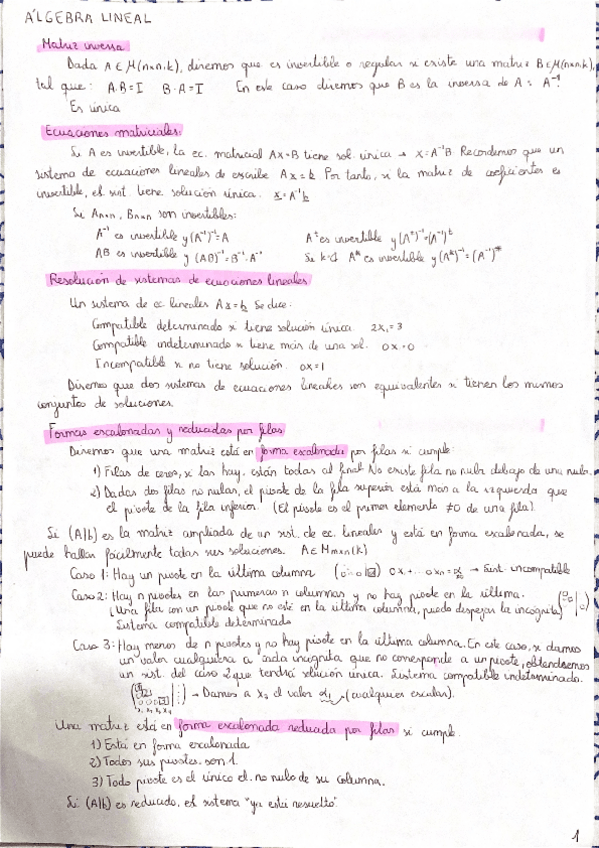 ÁLGEBRA LINEAL
Matriz inversa
Dada A ∈ M(n×n,k), diremos que es invertible o regular si existe una matriz B ∈ M(n×n,k),
tal que: A·B=I B·A=I En este caso diremos que B es la inversa de A: A⁻¹.
Es única
Ecuaciones matriciales:
Si A es invertible, la ec. matricial AX=B tiene sol. única → X=A⁻¹B. Recordemos que un
sistema de ecuaciones lineales de escribe Ax=b. Por tanto, si la matriz de coeficientes es
invertible, el sist. tiene solución única. x=A⁻¹b
Si An×n, Bn×n son invertibles:
A⁻¹ es invertible y (A⁻¹)⁻¹=A Aᵗ es invertible y (Aᵗ)⁻¹=(A⁻¹)ᵗ
AB es invertible y (AB)⁻¹=B⁻¹·A⁻¹ Si A* es invertible y (A*)⁻¹=(A⁻¹)*
Resolución de sistemas de ecuaciones lineales
Un sistema de ec. lineales Ax=b se dice:
Compatible determinado si tiene solución única. 2x₁=3
Compatible indeterminado si tiene más de una sol. 0x=0
Incompatible si no tiene solución. 0x=1
Diremos que dos sistemas de ecuaciones lineales son equivalentes si tienen los mismos
conjuntos de soluciones.
Formas escalonadas y reducidas por filas
Diremos que una matriz está en forma escalonada por filas si cumple:
1) Filas de ceros, si las hay, están todas al final. No existe fila no nula debajo de una nula.
2) Dadas dos filas no nulas, el pivote de la fila superior está más a la izquierda que
el pivote de la fila inferior. (El pivote es el primer elemento ≠0 de una fila).
Si (A|b) es la matriz ampliada de un sist. de ec. lineales y está en forma escalonada, se
puede hallar fácilmente todas sus soluciones. A ∈ Mm×n(k)
Caso 1: Hay un pivote en la última columna → Sist. incompatible
Caso 2: Hay n pivotes en las primeras n columnas y no hay pivote en la última.
(Una fila con un pivote que no esté en la última columna, puedo despejar la incógnita)
Sistema compatible determinado
Caso 3: Hay menos de n pivotes y no hay pivote en la última columna. En este caso, si damos
un valor cualquiera a cada incógnita que no corresponde a un pivote, obtendremos
un sist. del caso 2 que tendrá solución única. Sistema compatible indeterminado.
→ Damos a x₃ el valor α₁ (cualquier escalar).
Una matriz está en forma escalonada reducida por filas si cumple:
1) Está en forma escalonada
2) Todos sus pivotes son 1.
3) Todo pivote es el único el. no nulo de su columna.
Si (A|b) es reducido, el sistema "ya está resuelto".
1